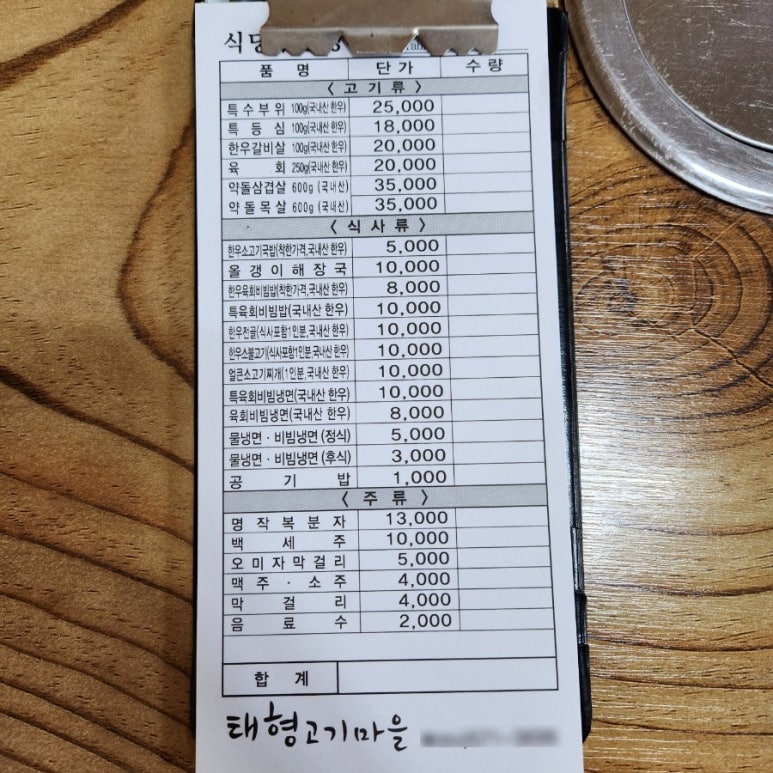 품 명 단 가 수 량
< 고 기 류 >
특 수 부 위 100g(국내산 한우) 25,000
특 등 심 100g(국내산 한우) 18,000
한우갈비살 100g(국내산 한우) 20,000
육 회 250g(국내산 한우) 20,000
약돌삼겹살 600g (국내산) 35,000
약 돌 목 살 600g (국내산) 35,000
< 식 사 류 >
한우소고기국밥(착한가격,국내산 한우) 5,000
올 갱 이 해 장 국 10,000
한우육회비빔밥(착한가격,국내산 한우) 8,000
특육회비빔밥(국내산 한우) 10,000
한우전골(식사포함1인분,국내산 한우) 10,000
한우소불고기(식사포함1인분,국내산 한우) 10,000
얼큰소고기찌개(1인분,국내산 한우) 10,000
특육회비빔냉면(국내산 한우) 10,000
육회비빔냉면(국내산 한우) 8,000
물냉면 · 비빔냉면 (정식) 5,000
물냉면 · 비빔냉면 (후식) 3,000
공 기 밥 1,000
< 주 류 >
명 작 복 분 자 13,000
백 세 주 10,000
오 미 자 막 걸 리 5,000
맥 주 · 소 주 4,000
막 걸 리 4,000
음 료 수 2,000
합 계
태형고기마을